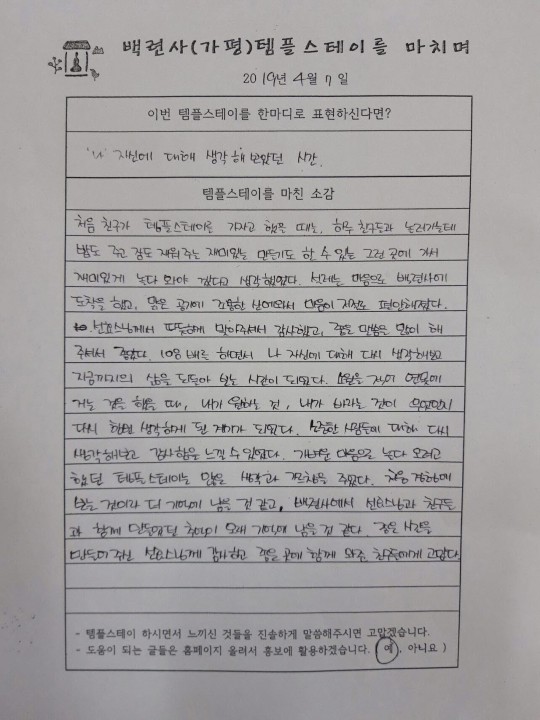 백련사(가평)템플스테이를 마치며
2019년 4월 7일
이번 템플스테이를 한마디로 표현하신다면?
"나" 자신에 대해 생각해 보았던 시간.
템플스테이를 마친 소감
처음 친구가 템플스테이를 가자고 했을 때는, 하루 친구들과 놀러가는데
밥도 주고 잠도 재워주는 재미있는 만들기도 할 수 있는 그런 곳에 가서
재미있게 놀다 와야 겠다고 생각했었다. 설레는 마음으로 백련사에
도착을 했고, 맑은 공기에 조용한 산에와서 마음이 저절로 편안해졌다.
선요스님께서 따뜻하게 맞아주셔서 감사했고, 좋은 말씀을 많이 해
주셔서 좋았다. 108배를 하면서 나 자신에 대해 다시 생각해보고
지금까지의 삶을 되돌아 보는 시간이 되었다. 소원을 적어 연못에
거는 것을 했을 때, 내가 원하는 것, 내가 바라는 것이 무엇인지
다시 한번 생각하게 된 계기가 되었다. 소중한 사람들에 대해 다시
생각해보고 감사함을 느낄 수 있었다. 가벼운 마음으로 놀다 오려고
했던 템플스테이는 많은 생각과 를 주었다. 처음 경험해
보는 것이라 더 기억에 남을 것 같고, 백련사에서 선요스님과 친구들
과 함께 만들었던 추억이 오래 기억에 남을 것 같다. 좋은 시간을
만들어주신 선요스님께 감사하고 좋은 곳에 함께 와준 친구들에게 고맙다.
- 템플스테이 하시면서 느끼신 것들을 진솔하게 말씀해주시면 고맙겠습니다.
- 도움이 되는 글들은 홈페이지 올려서 홍보에 활용하겠습니다. ( 예, 아니요 )